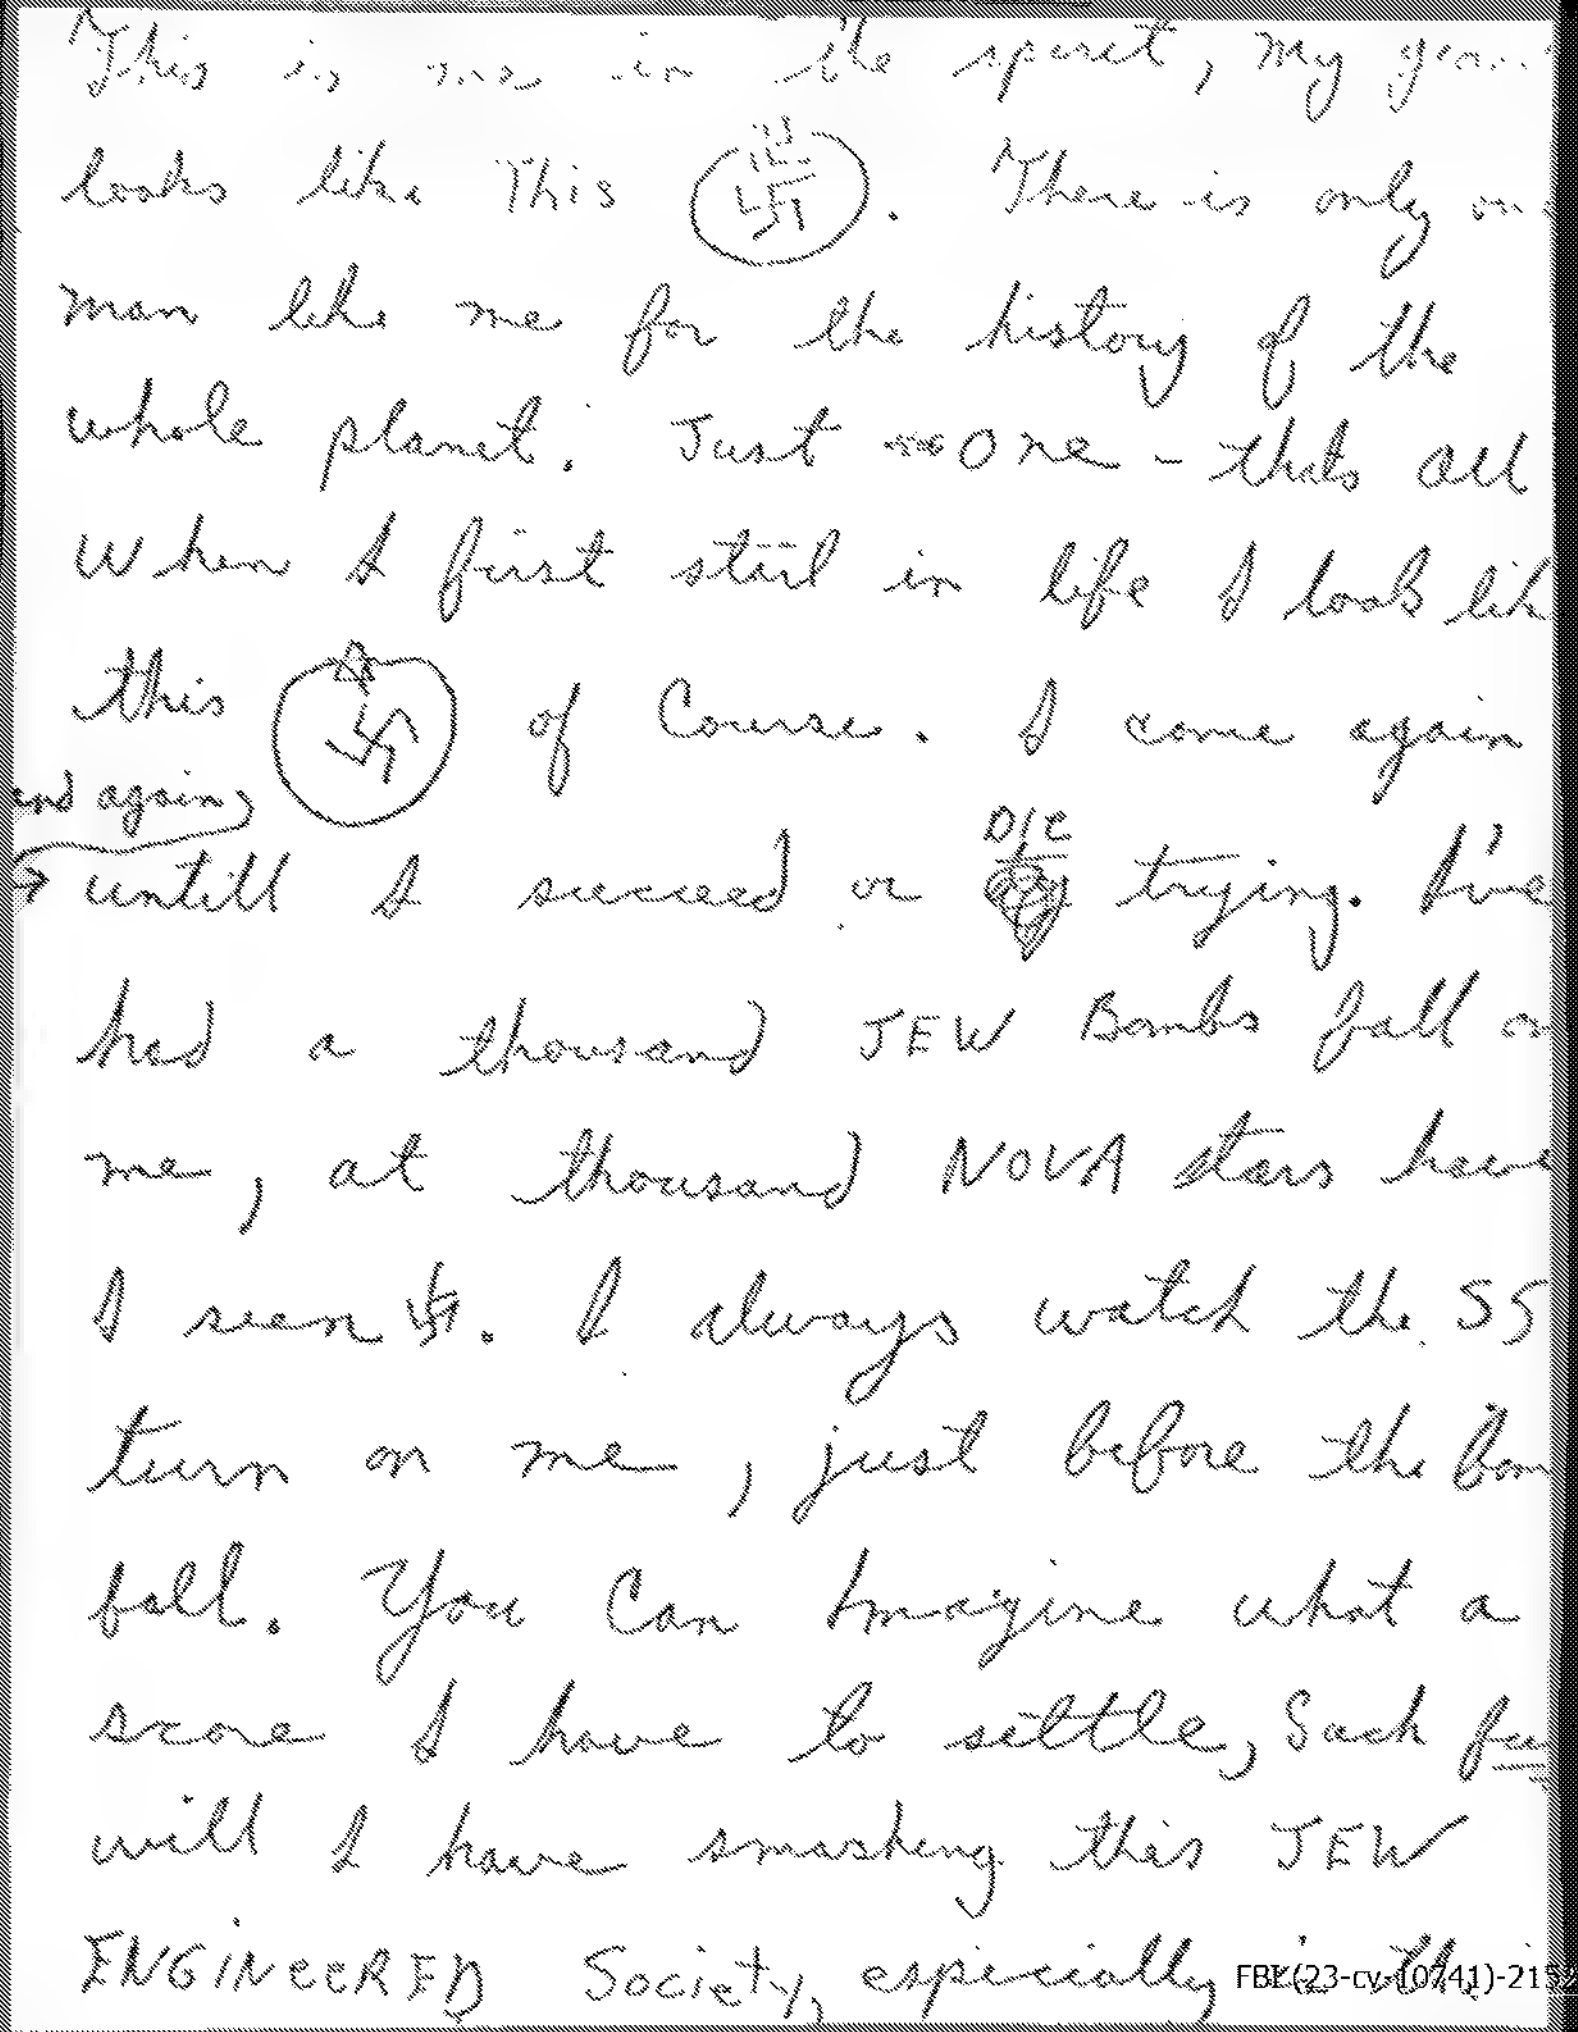 This is me in the spirit, my
looks like This 卐. There is only
man like me for the history of the
whole planet. Just One - thats all
When I first start in life I look lik
this 卐 of Course. I come again
and again,
DIE
→ untill I succeed or trying. I've
had a thousand JEW Bombs fall on
me, at thousand NOVA stars have
I seen 卐. I always watch the SS
turn on me, just before the bom
fall. You Can Imagine what a
score I have to settle, Such fu
will I have smashing this JEW
ENGINEERED Society, especially in thi
FBI (23-cv-10741)-215